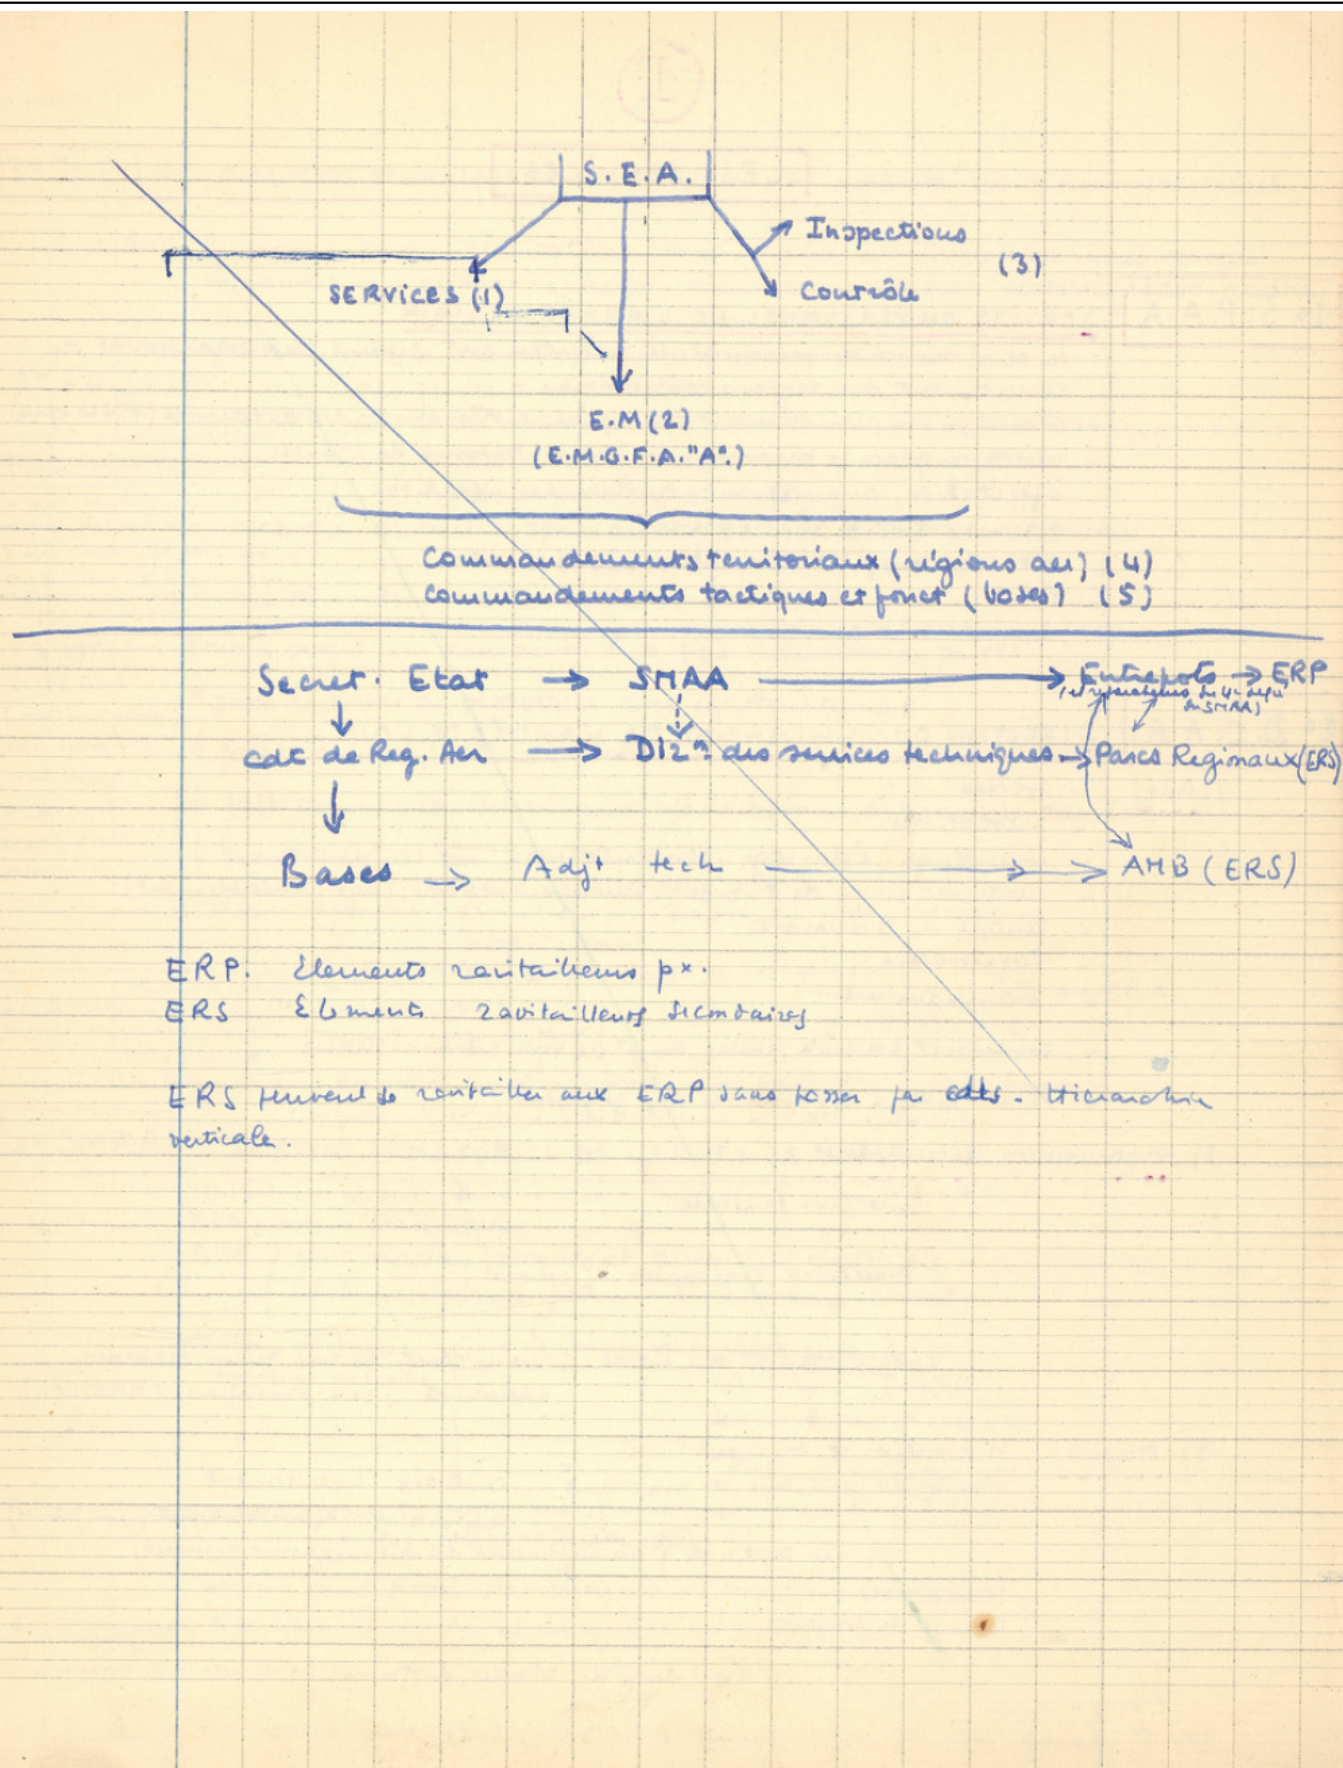 S.E.A.
Inspections
(3)
SERVICES (1)
Contrôle
E.M (2)
(E.M.G.F.A."A".)
Commandements territoriaux (régions aer) (4)
Commandements tactiques et fonct (bases) (5)
Secret. Etat → SMAA → Entrepots → ERP
du SMAA)
Cdt de Reg. Aer → DI2n des services techniques → Parcs Regionaux (ERS)
Bases → Adjt tech → AMB (ERS)
ERP. Elements ravitailleurs px.
ERS Elements ravitailleurs secondaires
ERS peuvent se ravitailler aux ERP sans passer par cdts. Hierarchie
verticale.